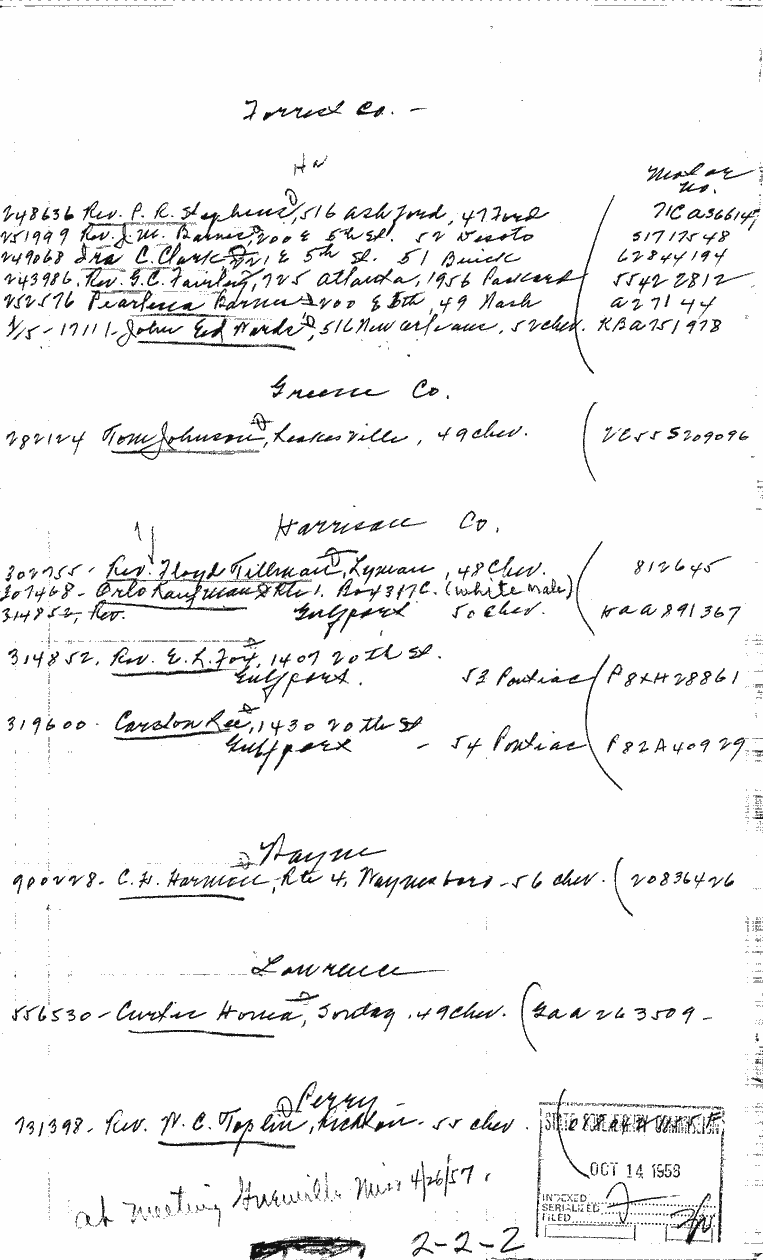 Forrest Co. -
Motor
No.
248636 Rev. P. R. Stephens, 516 Ashford, 47 Ford 71CA36614
251999 Rev. J.W. Barnes, 200 E 5th St. 52 Desoto 51717548
249068 Ira C. Clark Jr, 1 E 5th St. 51 Buick 62844194
243986 Rev. G.C. Fairley, 725 Atlanta, 1956 Packard 55422812
252576 Pearlena Barnes 200 E 5th, 49 Nash A27144
1/5-17111-John Ed Wards, 516 New Orleans, 52 Chev. KBA751978
Greene Co.
282124 Tom Johnson, Leakesville, 49 Chev. 2C555209096
Harrison Co.
302755- Rev. Floyd Tillman, Lyman, 48 Chev. 812645
307468- Orlo Kaufman Rte 1. Box 317C. (white male)
314852, Rev. Gulfport 50 Chev. HAA891367
314852. Rev. E. L. Foy, 1407 20th St.
Gulfport. 53 Pontiac P8XH28861
319600- Carston Lee, 1430 20th St
Gulfport - 54 Pontiac P82A40929
Wayne
900228- C.H. Harmon, Rte 4, Waynesboro-56 Chev. 20836426
Lawrence
556530- Curtis Homea, Sontag, 49 Chev. GAA263509-
Perry
731398- Rev. W. C. Toplin, Richton- 55 Chev.
STATE SOVEREIGNTY COMMISSION
OCT 14 1958
INDEXED
SERIALIZED
FILED
at meeting Greenville Miss 4/26/57.
2-2-2